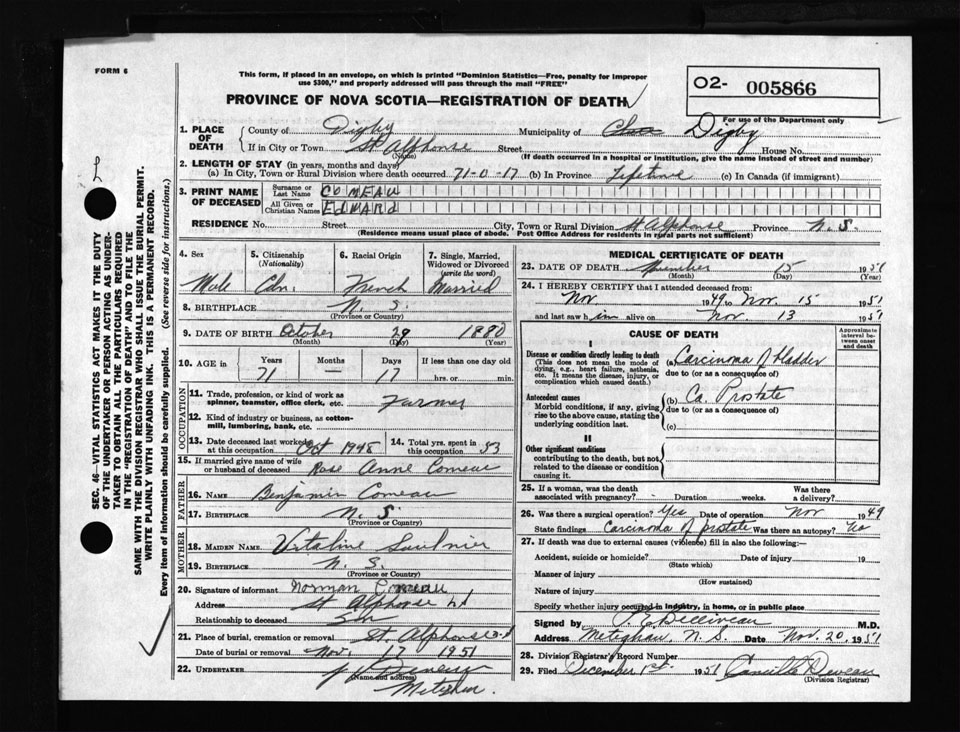 FORM 6
This form, if placed in an envelope, on which is printed "Dominion Statistics—Free, penalty for improper
use $300," and properly addressed will pass through the mail "FREE"
PROVINCE OF NOVA SCOTIA—REGISTRATION OF DEATH
O2- 005866
For use of the Department only
1. PLACE OF DEATH
County of Digby Municipality of Digby
If in City or Town St Alphonse Street House No.
(Name) (If death occurred in a hospital or institution, give the name instead of street and number)
2. LENGTH OF STAY (in years, months and days)
(a) In City, Town or Rural Division where death occurred 71-0-17 (b) In Province Lifetime (c) In Canada (if immigrant)
3. PRINT NAME OF DECEASED
Surname or Last Name COMEAU
All Given or Christian Names EDWARD
RESIDENCE No. Street City, Town or Rural Division St Alphonse Province N. S.
(Residence means usual place of abode. Post Office Address for residents in rural parts not sufficient)
4. Sex 5. Citizenship (Nationality) 6. Racial Origin 7. Single, Married, Widowed or Divorced (write the word)
Male Cdn. French Married
8. BIRTHPLACE N. S.
(Province or Country)
9. DATE OF BIRTH October 29 1880
(Month) (Day) (Year)
10. AGE in Years Months Days If less than one day old
71 — 17 hrs. or min.
OCCUPATION
11. Trade, profession, or kind of work as
spinner, teamster, office clerk, etc. Farmer
12. Kind of industry or business, as cotton-
mill, lumbering, bank, etc.
13. Date deceased last worked at this occupation Oct 1948 14. Total yrs. spent in this occupation 53
15. If married give name of wife
or husband of deceased Rose Anne Comeau
FATHER
16. Name Benjamin Comeau
17. Birthplace N. S
(Province or Country)
MOTHER
18. Maiden Name Vitaline Saulnier
19. Birthplace N. S.
(Province or Country)
20. Signature of informant Norman Comeau
Address St Alphonse
Relationship to deceased Son
21. Place of burial, cremation or removal St. Alphonse
Date of burial or removal Nov. 17 1951
22. UNDERTAKER
(Name and address)
Meteghan.
MEDICAL CERTIFICATE OF DEATH
23. DATE OF DEATH November 15 1951
(Month) (Day) (Year)
24. I HEREBY CERTIFY that I attended deceased from:
Nov 1949 to Nov. 15 1951
and last saw him alive on Nov. 13 1951
CAUSE OF DEATH
Approximate interval between onset and death
I
Disease or condition directly leading to death
(This does not mean the mode of
dying, e.g., heart failure, asthenia,
etc. It means the disease, injury, or
complication which caused death.)
(a) Carcinoma of bladder
due to (or as a consequence of)
Antecedent causes
Morbid conditions, if any, giving
rise to the above cause, stating the
underlying condition last.
(b) Ca. Prostate
due to (or as a consequence of)
(c)
II
Other significant conditions
contributing to the death, but not
related to the disease or condition
causing it.
25. If a woman, was the death
associated with pregnancy? Duration weeks. Was there a delivery?
26. Was there a surgical operation? Yes Date of operation Nov 1949
State findings Carcinoma of prostate Was there an autopsy? No
27. If death was due to external causes (violence) fill in also the following:—
Accident, suicide or homicide? Date of injury 19
(State which)
Manner of injury
(How sustained)
Nature of injury
Specify whether injury occurred in industry, in home, or in public place
Signed by P. E. Belliveau M.D.
Address Meteghan, N. S. Date Nov. 20, 1951
28. Division Registrar's Record Number
29. Filed December 1st. 1951 Camille Deveau
(Division Registrar)
SEC. 46—VITAL STATISTICS ACT MAKES IT THE DUTY
OF THE UNDERTAKER OR PERSON ACTING AS UNDER-
TAKER TO OBTAIN ALL THE PARTICULARS REQUIRED
IN THE "REGISTRATION OF DEATH" AND TO FILE THE
SAME WITH THE DIVISION REGISTRAR WHO SHALL ISSUE THE BURIAL PERMIT.
WRITE PLAINLY WITH UNFADING INK. THIS IS A PERMANENT RECORD.
Every item of information should be carefully supplied. (See reverse side for instructions.)